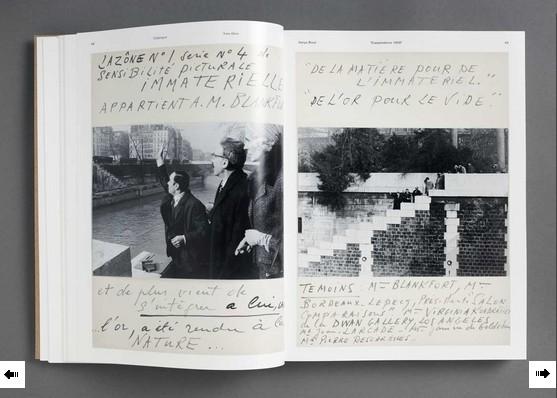 Yves Klein
LAZÔNE Nº1, serie Nº4 de
SENSIBILITÉ PICTURALE
IMMATERIELLE
APPARTIENT A. M. BLANKF
et de plus vient de
s'intégrer a lui,
l'or, a été rendu à la
NATURE ...
"DE LA MATIÈRE POUR DE
L'IMMATERIEL."
"DE L'OR POUR LE VIDE."
TEMOINS : Mr BLANKFORT, Mme
BORDEAUX LEPECQ, Présidente SALON
COMPARAISONS Mme VIRGINIA
de la DWAN GALLERY LOS ANGELES
Mr Jean LARCADE
Mr PIERRE DESCARGUES